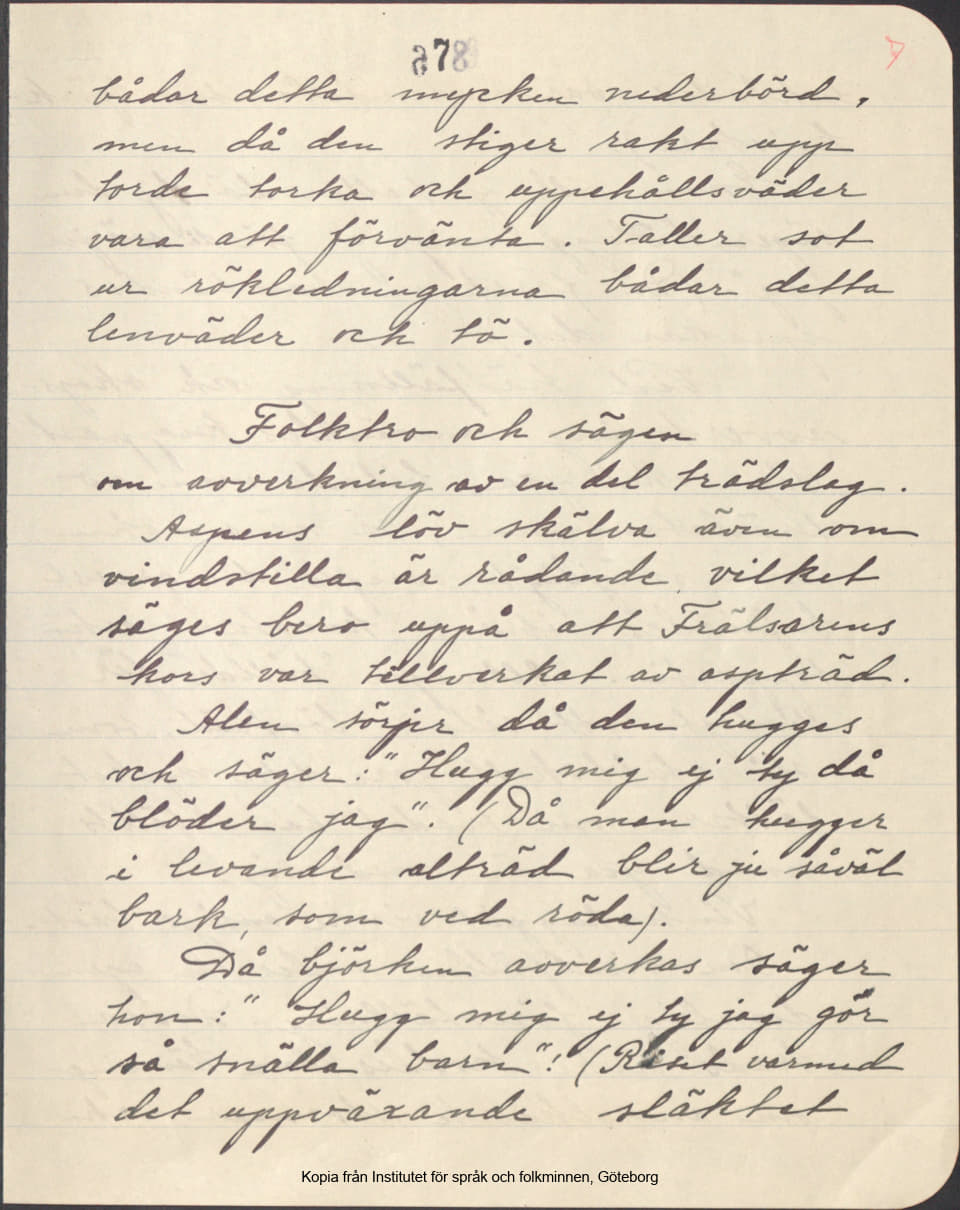 678 7
bådar detta mycken nederbörd,
men då den stiger rakt upp
torde torka och uppehållsväder
vara att förvänta. Faller sot
ur rökledningarna bådar detta
lenväder och tö.
Folktro och sägen
om avverkning av en del trädslag.
Aspens löv skälva även om
vindstilla är rådande vilket
säges bero uppå att Frälsarens
kors var tillverkat av aspträd.
Alen sörjer då den hugges
och säger: "Hugg mig ej ty då
blöder jag". (Då man hugger
i levande alträd blir ju såväl
bark, som ved röda).
Då björken avverkas säger
hon: "Hugg mig ej ty jag gör
så snälla barn"! (Riset varmed
det uppväxande släktet
Kopia från Institutet för språk och folkminnen, Göteborg